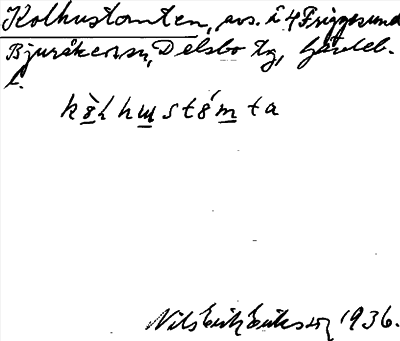 Kolhustomten, avs. å 4 Friggesund
Bjuråkers sn, Delsbo tg, Gävleb.
l.
kòlhustómta
Nils Erik Eriksson 1936.